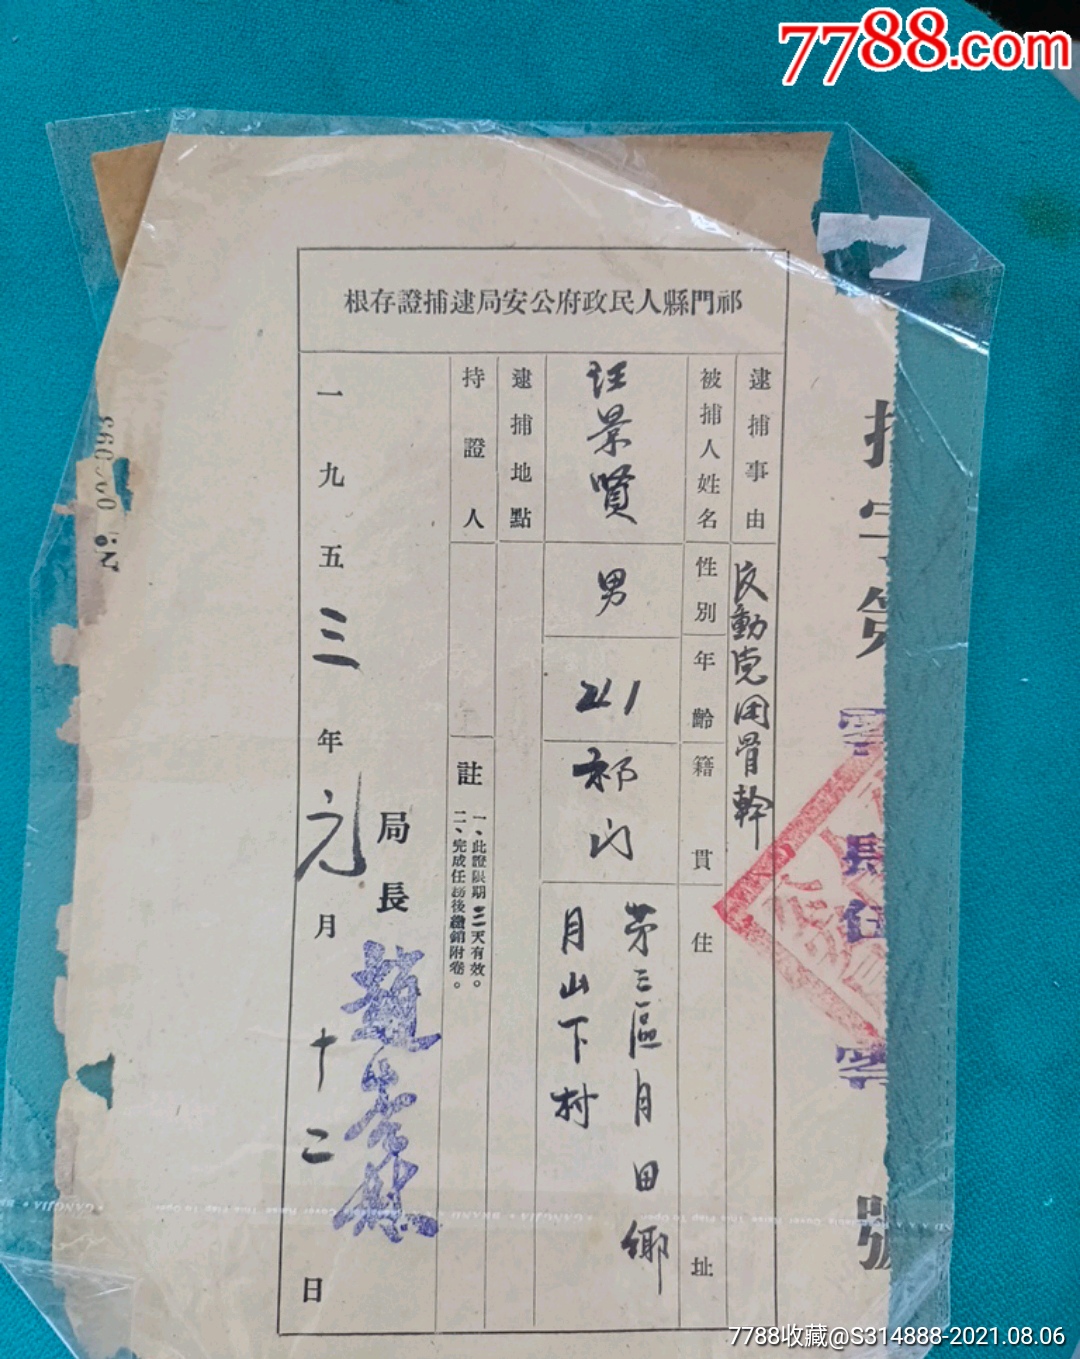 7788.com
祁門縣人民政府公安局逮捕證存根
捕字第
零肆伍零
號
逮捕事由
反動党团骨幹
被捕人姓名
性別
年齡
籍貫
住址
汪景賢
男
21
祁门
第三區月田鄉
月山下村
逮捕地點
持證人
註
一、此證限期三天有效。
二、完成任務後繳銷附卷。
局長
一九五三年元月十二日
№
GANGJIA · BRAND
7788收藏@S314888-2021.08.06